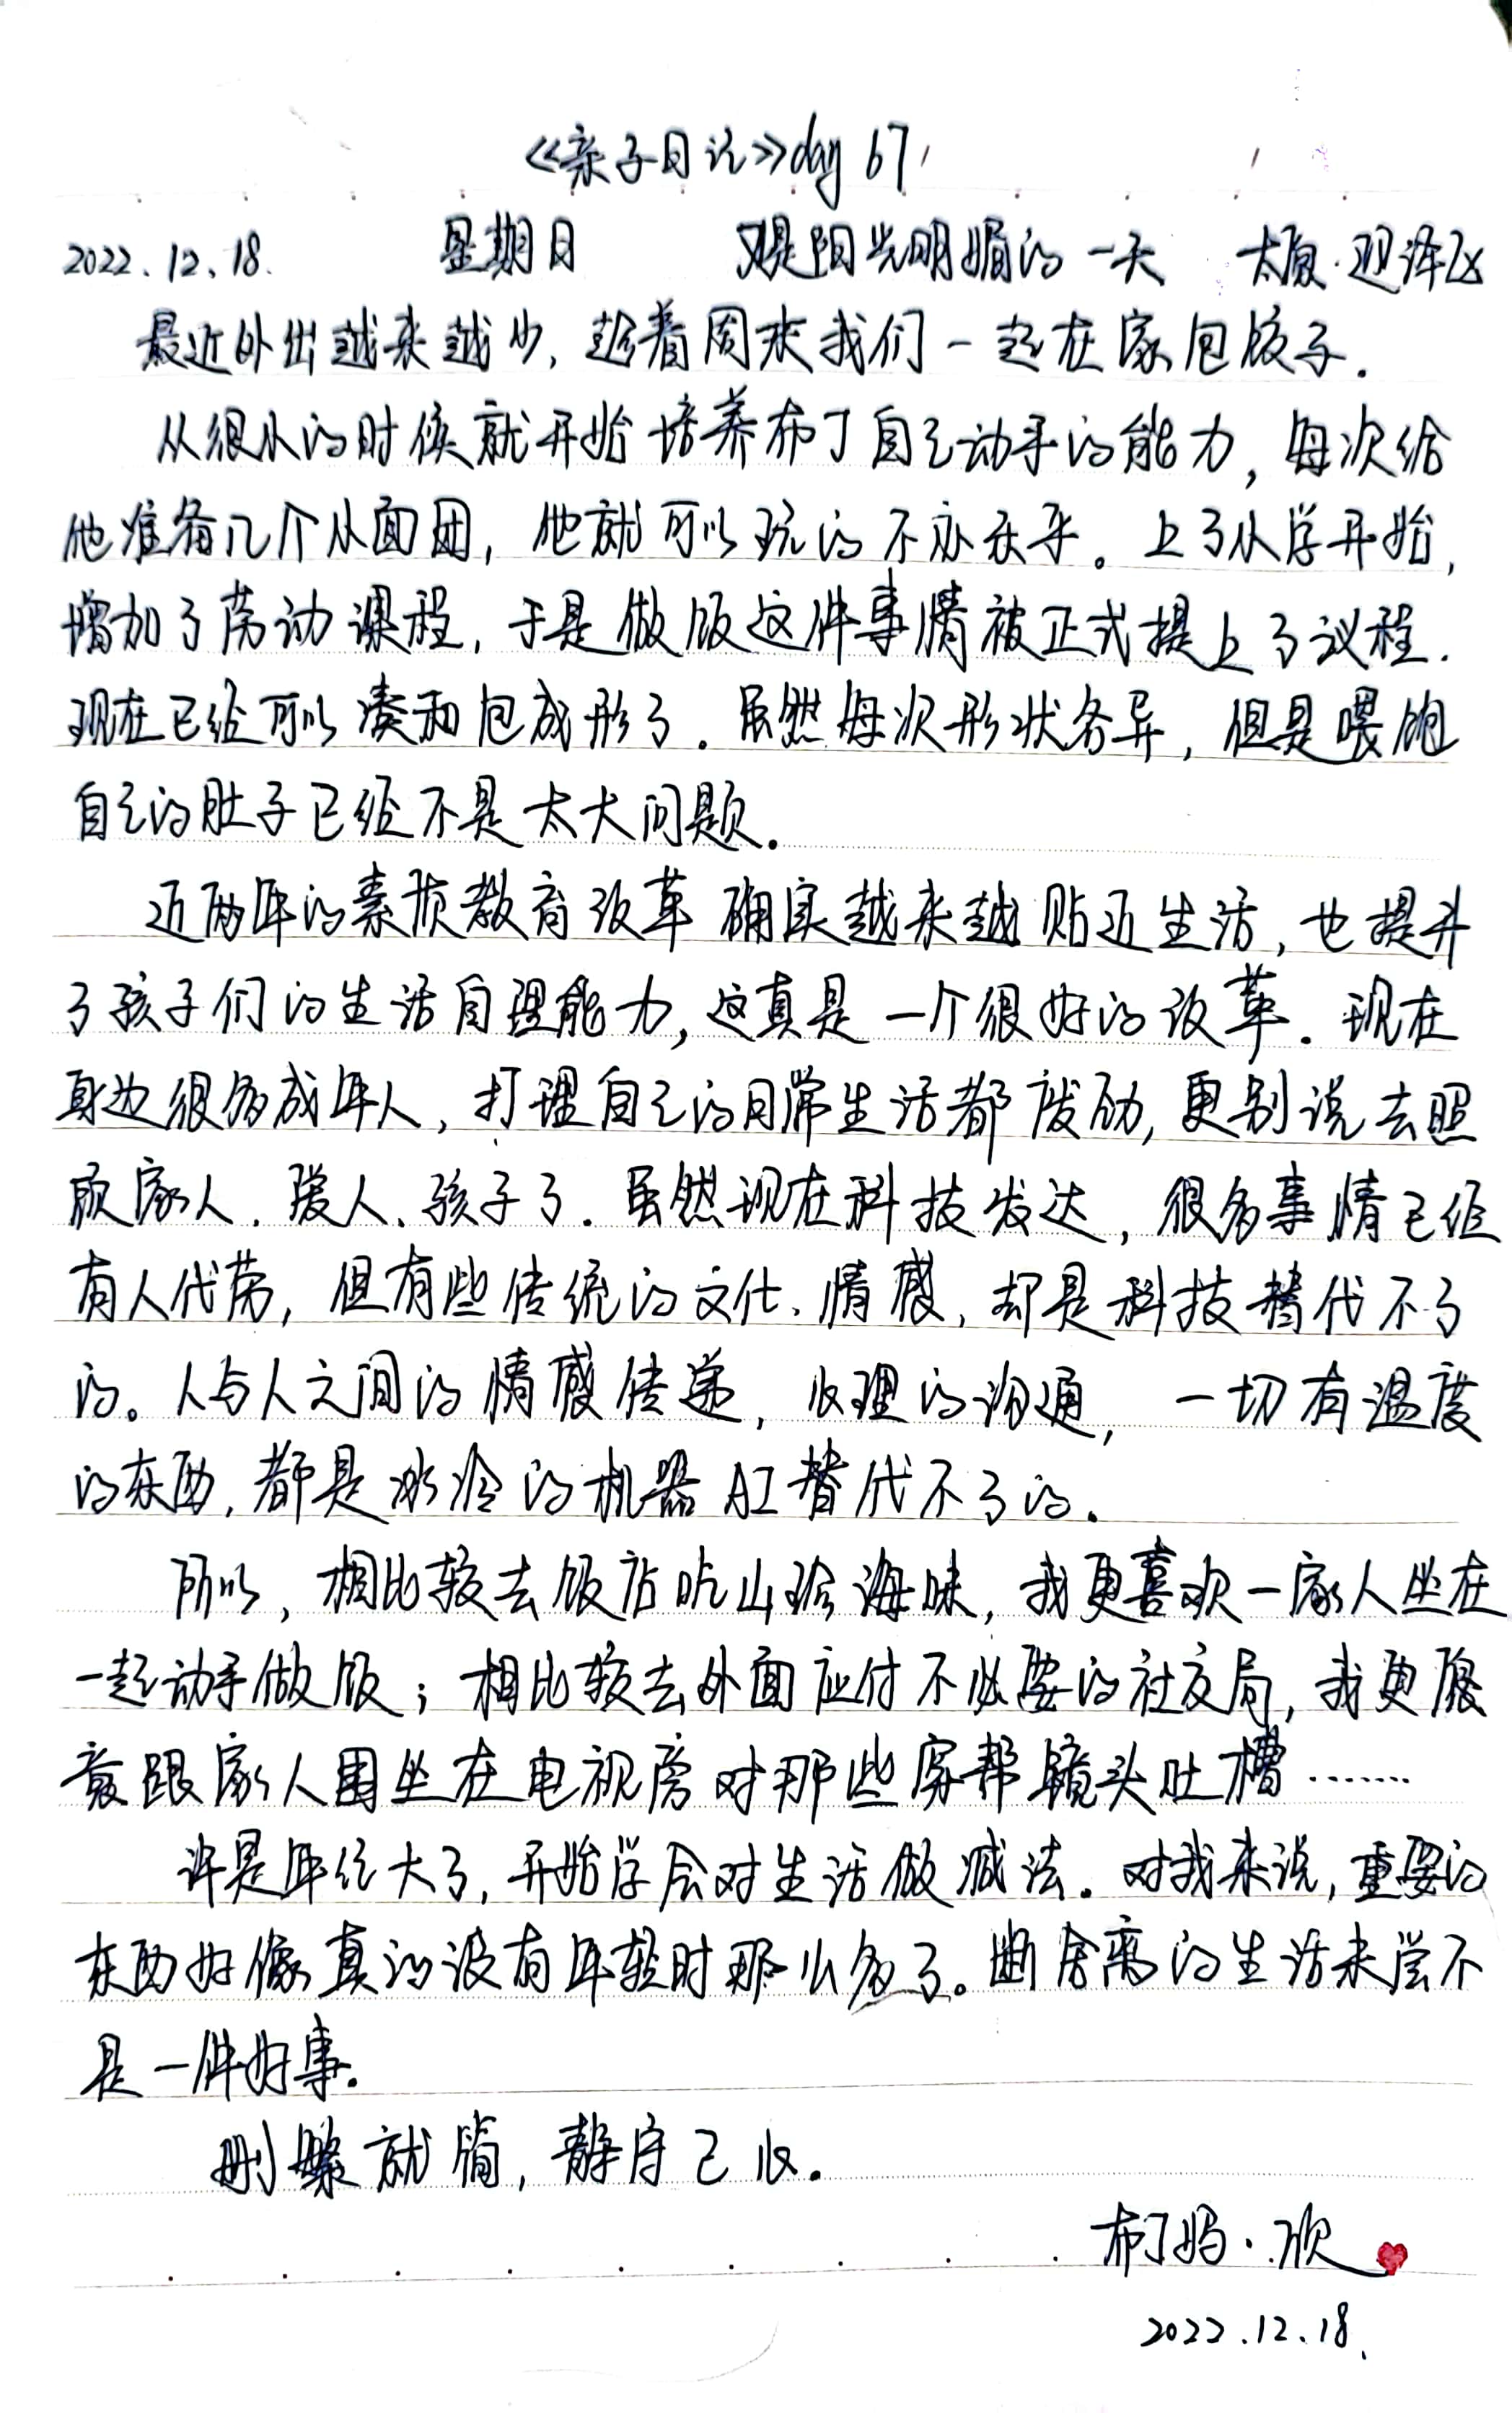 《亲子日记》day 67
2022.12.18. 星期日 又是阳光明媚的一天 太原·迎泽区
最近外出越来越少,趁着周末我们一起在家包饺子.
从很小的时候就开始培养布丁自己动手的能力,每次给
他准备几个小面团,他就可以玩的不亦乐乎。上了小学开始,
增加了劳动课程,于是做饭这件事情被正式提上了议程.
现在已经可以凑和包成形了.虽然每次形状各异,但是喂饱
自己的肚子已经不是太大问题.
近两年的素质教育改革确实越来越贴近生活,也提升
了孩子们的生活自理能力,这真是一个很好的改革.现在
身边很多成年人,打理自己的日常生活都费劲,更别说去照
顾家人、爱人、孩子了.虽然现在科技发达,很多事情已经
有人代劳,但有些传统的文化、情感,却是科技替代不了
的。人与人之间的情感传递,心理的沟通,一切有温度
的东西,都是冰冷的机器AI替代不了的.
所以,相比较去饭店吃山珍海味,我更喜欢一家人坐在
一起动手做饭;相比较去外面应付不必要的社交局,我更愿
意跟家人围坐在电视旁对那些穿帮镜头吐槽……
许是年纪大了,开始学会对生活做减法。对我来说,重要的
东西好像真的没有年轻时那么多了。断舍离的生活未尝不
是一件好事.
删繁就简,静守己心.
布丁妈·欣
2022.12.18.